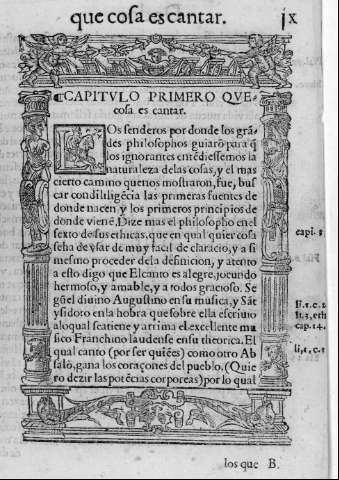 que cosa es cantar. jx
CAPITVLO PRIMERO QVE
cosa es cantar.
LOs senderos por donde los grã
des philosophos guiarõ para q̃
los ignorantes entẽdiessemos la
naturaleza delas cosas, y el mas
cierto camino quenos mostraron, fue, bus
car condiligẽcia las primeras fuentes de
donde nacen y los primeros principios de
donde vienẽ, Dize mas el philosopho enel
sexto de sus ethicas, que en qual quier cosa
seha de vsar de muy facil declaraciõ, y a si
mesmo proceder dela definicion, y atento
a esto digo que El canto es alegre, jocundo
hermoso, y amable, y a todos gracioso. Se
gũ el diuino Augustino en su musica, y Sãt
ysidoro en la hobra que sobre ella escriuio
aloqual se atiene y arrima el excellente mu
sico Franchino laudense en su theorica. El
qual canto (por ser quiẽ es) como otro Ab
salõ, gana los coraçones del pueblo. (Quie
ro dezir las potẽcias corporeas) por lo qual
capi. 3
li. 1. c. 2
li. 2, eth
cap. 14.
li, 1. c. 1
los que B.